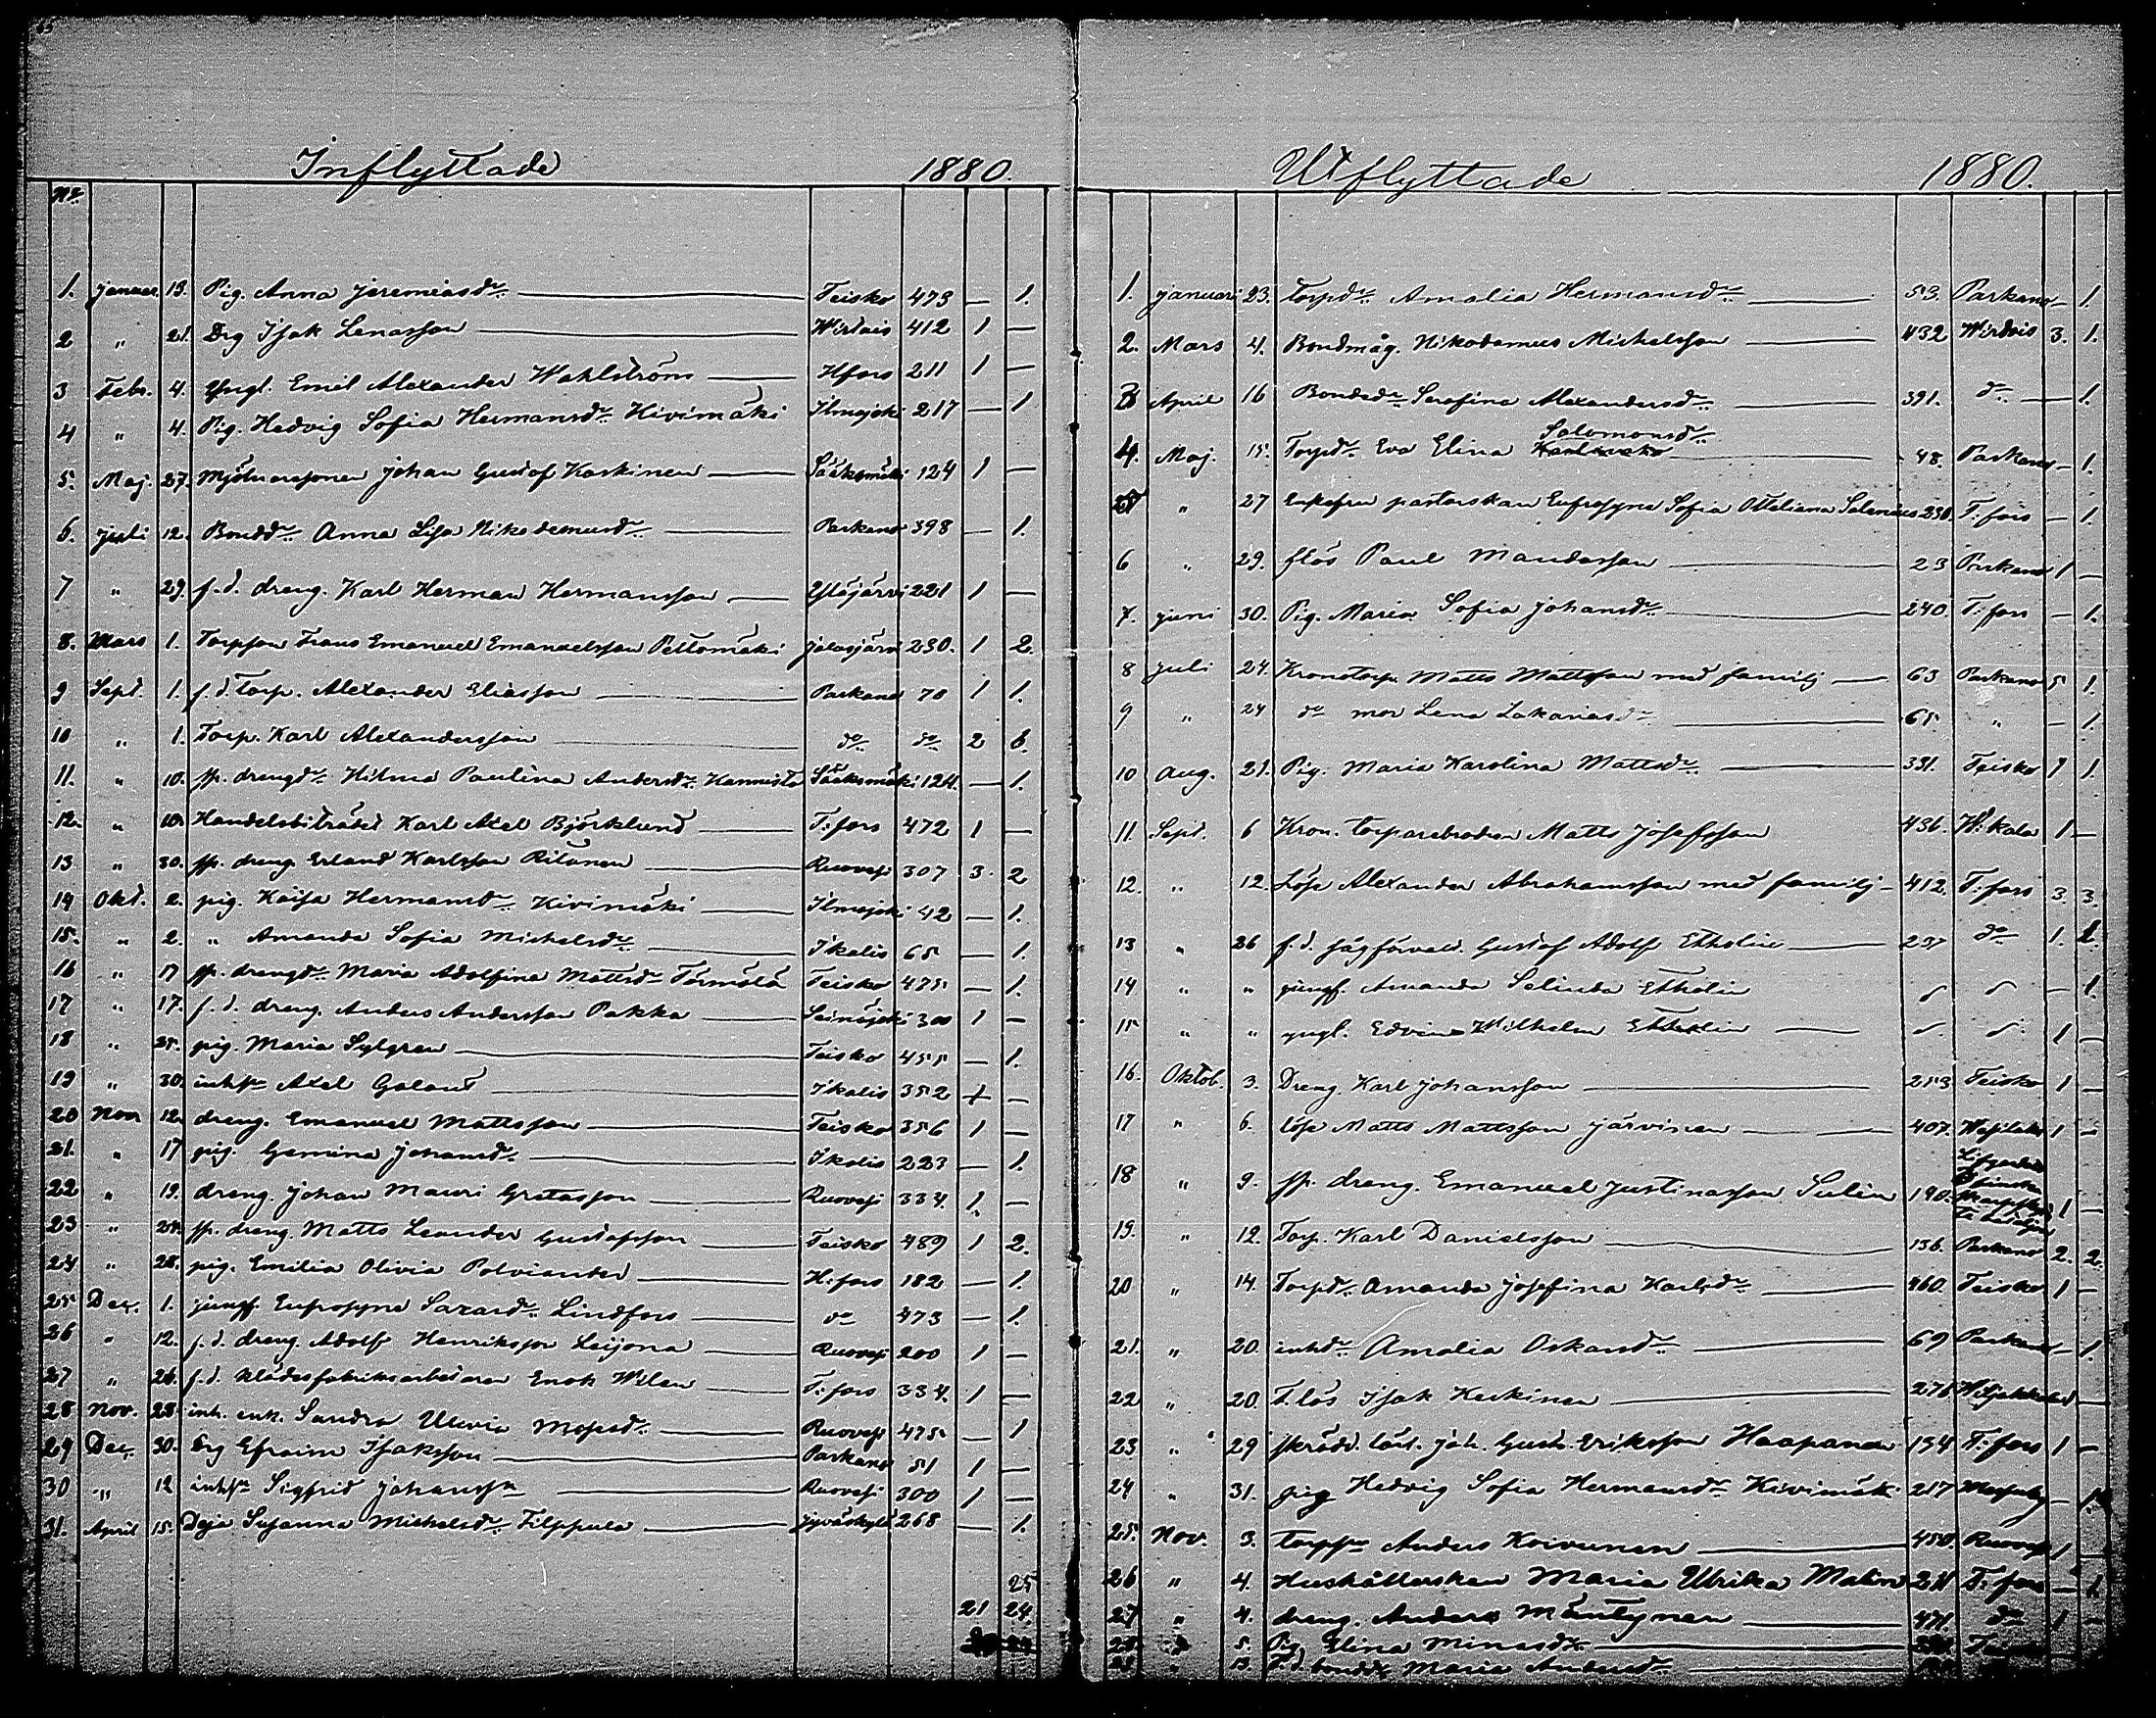 Inflyttade 1880.
No.
1. Januar. 13. Pig. Anna Jeremiasdr. Teisko 473 — 1.
2 " 21. Drg Isak Lenasson Wirdois 412 1 —
3 Febr. 4. Yngl. Emil Alexander Wahlström Hfors 211 1 —
4 " 4. Pig. Hedvig Sofia Hermansdr. Kivimäki Ilmajoki 217 — 1
5. Maj. 27. Mjölnaresonen Johan Gustaf Koskinen Sääksmäki 124 1 —
6. Juli 12. Bonddr. Anna Lisa Nikodemusdr. Parkano 398 — 1.
7 " 29. f.d. dreng. Karl Herman Hermansson Ylöjärvi 221 1 —
8. Mars 1. Torpson Frans Emanuel Emanuelsson Peltomäki Jalasjärvi 230. 1 2.
9 Sept. 1. f.d. torp. Alexander Eliasson Parkano 70 1 1.
10 " 1. Torp. Karl Alexandersson do do 2 6.
11. " 10. sp. drengdr. Hilma Paulina Andersdr. Kannisto Sääksmäki 124. — 1.
12. " 10. Handelsbiträdet Karl Axel Björklund T:fors 472 1 —
13 " 30. sp. dreng Erland Karlsson Ritanen Ruovesi 307 3. 2
14 Okt. 2. pig. Kaisa Hermansdr. Kivimäki Ilmajoki 42 — 1.
15. " 2. " Amanda Sofia Michelsdr. Ikalis 65 — 1.
16 " 17 sp. drengdr. Maria Adolfina Mattsdr Törmälä Teisko 475 — 1.
17 " 17. f.d. dreng. Anders Andersson Pakka Seinäjoki 300 1 —
18 " 25. pig. Maria Sylgren Teisko 455 — 1.
19 " 30. inhsn Axel Galant Ikalis 352 1 —
20 Nov 12. dreng. Emanuel Mattsson Teisko 356 1 —
21. " 17 pig. Gamina Johansdr. Ikalis 223 — 1.
22 " 19. dreng. Johan Mauri Gretasson Ruovesi 334. 1. —
23 " 24. sp. dreng. Matts Leander Gustafsson Teisko 489 1 2.
24 " 28. pig. Emilia Olivia Polviander H:fors 182 — 1.
25 Dec. 1. jungf. Eufrosyne Sarasdr. Lindfors do 473 — 1.
26 " 12. f.d. dreng. Adolf Henriksson Leijona Ruovesi 200 1 —
27 " 26. f.d. klädesfabriksarbetaren Enok Wilen T:fors 334. 1 —
28 Nov. 28. inh. enk. Sandra Ulrica Mosesdr. Ruovesi 475 — 1
29 Dec. 30. Drg Efraim Isaksson Parkano 51 1 —
30 " 12 inhsn Sigfrid Johansson Ruovesi 300 1 —
31. April 15. Deja Susanna Michelsdr. Filppula Jyväskylä 268 — 1.
25
21 24.
Utflyttade 1880.
1. Januari 23. Torpdr. Amalia Hermansdr. 53. Parkano — 1.
2. Mars 4. Bondmåg. Nikodemus Michelsson 432 Wirdois 3. 1.
3 April 16 Bondedr. Serafina Alexandersdr. 391. do — 1.
Salomonsdr.
4. Maj. 15. Torpdr. Eva Elina 48. Parkano — 1.
" 27 Enkefru pastorskan Eufrosyne Sofia Ottiliana Salenius 230. T:fors — 1.
6 " 29. flös Paul Mandasson 23 Parkano 1 —
7. Juni 30. Pig. Maria Sofia Johansdr. 240. T:fors — 1.
8 Juli 24. Kronotorp. Matts Mattsson med familj 63 Parkano 5 1.
9 " 24 do mor Lena Zakariasdr. 65 " — 1.
10 Aug. 21. Pig. Maria Karolina Mattsdr. 331. Teisko 1 1.
11. Sept. 6 Kron. torparebroden Matts Josefsson 436. 1 —
12. " 12. Löse Alexander Abrahamsson med familj 412. T:fors 3. 3.
13 " 26 f.d. sågförvalt. Gustaf Adolf Etholin 237 do 1. 2
14 " " jungf. Amanda Selinda Etholin — 1.
15 " " yngl. Edvin Wilhelm Etholin 1 —
16. Oktob. 3. Dreng. Karl Johansson 253 Teisko 1 —
17 " 6. löse Matts Mattsson Järvinen 407. 1 —
18 " 9. sp. dreng. Emanuel Justinasson Sulin 190. 1 —
19. " 12. Torp. Karl Danielsson 136. Parkano 2. 2.
20 " 14. Torpdr. Amanda Josefina Karlsdr. 460. Teisko 1 —
21. " 20. inhdr. Amalia Oskarsdr. 69 Parkano — 1.
22 " 20. T.lös Isak Keskinen 276 —
23. " 29 skrädd. lärl. Joh. Gust. Eriksson Haapanen 154 T:fors 1 —
24 " 31. pig Hedvig Sofia Hermansdr. Kivimäki 217 — 1.
25. Nov. 3. torpsn Anders Koivunen 450. Ruovesi 1 —
26 " 4. Hushållerskan Maria Ulrika Malin 211 T:fors — 1
27 " 4. dreng. Anders Mäntynen 471. do 1 —
28 5. Pig Elina Minasdr. Teisko
13. F.d. bonddr Maria Andersdr.